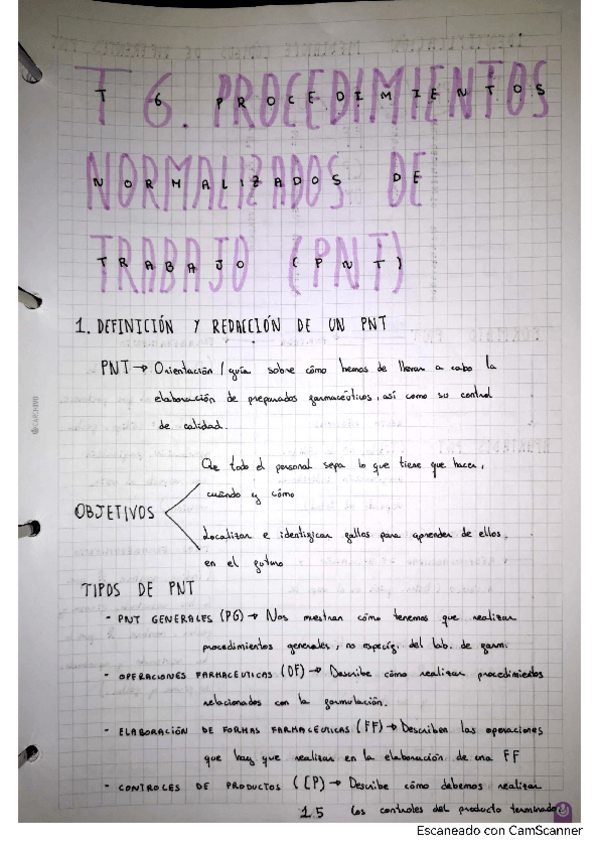 T 6. PROCEDIMIENTOS
NORMALIZADOS DE
TRABAJO (PNT)
1. DEFINICIÓN Y REDACCIÓN DE UN PNT
PNT → Orientación / guía sobre cómo hemos de llevar a cabo la
elaboración de preparados farmacéuticos, así como su control
de calidad.
Que todo el personal sepa lo que tiene que hacer,
cuándo y cómo
OBJETIVOS
Localizar e identificar fallos para aprender de ellos,
en el futuro
TIPOS DE PNT
- PNT GENERALES (PG) → Nos muestran cómo tenemos que realizar
procedimientos generales, no específ. del lab. de farm.
- OPERACIONES FARMACEUTICAS (OF) → Describe cómo realizar procedimientos
relacionados con la formulación.
- ELABORACIÓN DE FORMAS FARMACEÚTICAS (FF) → Describen las operaciones
que hay que realizar en la elaboración de una FF
- CONTROLES DE PRODUCTOS (CP) → Describe cómo debemos realizar
1.5 los controles del producto terminado.
CARCHIVO
Escaneado con CamScanner